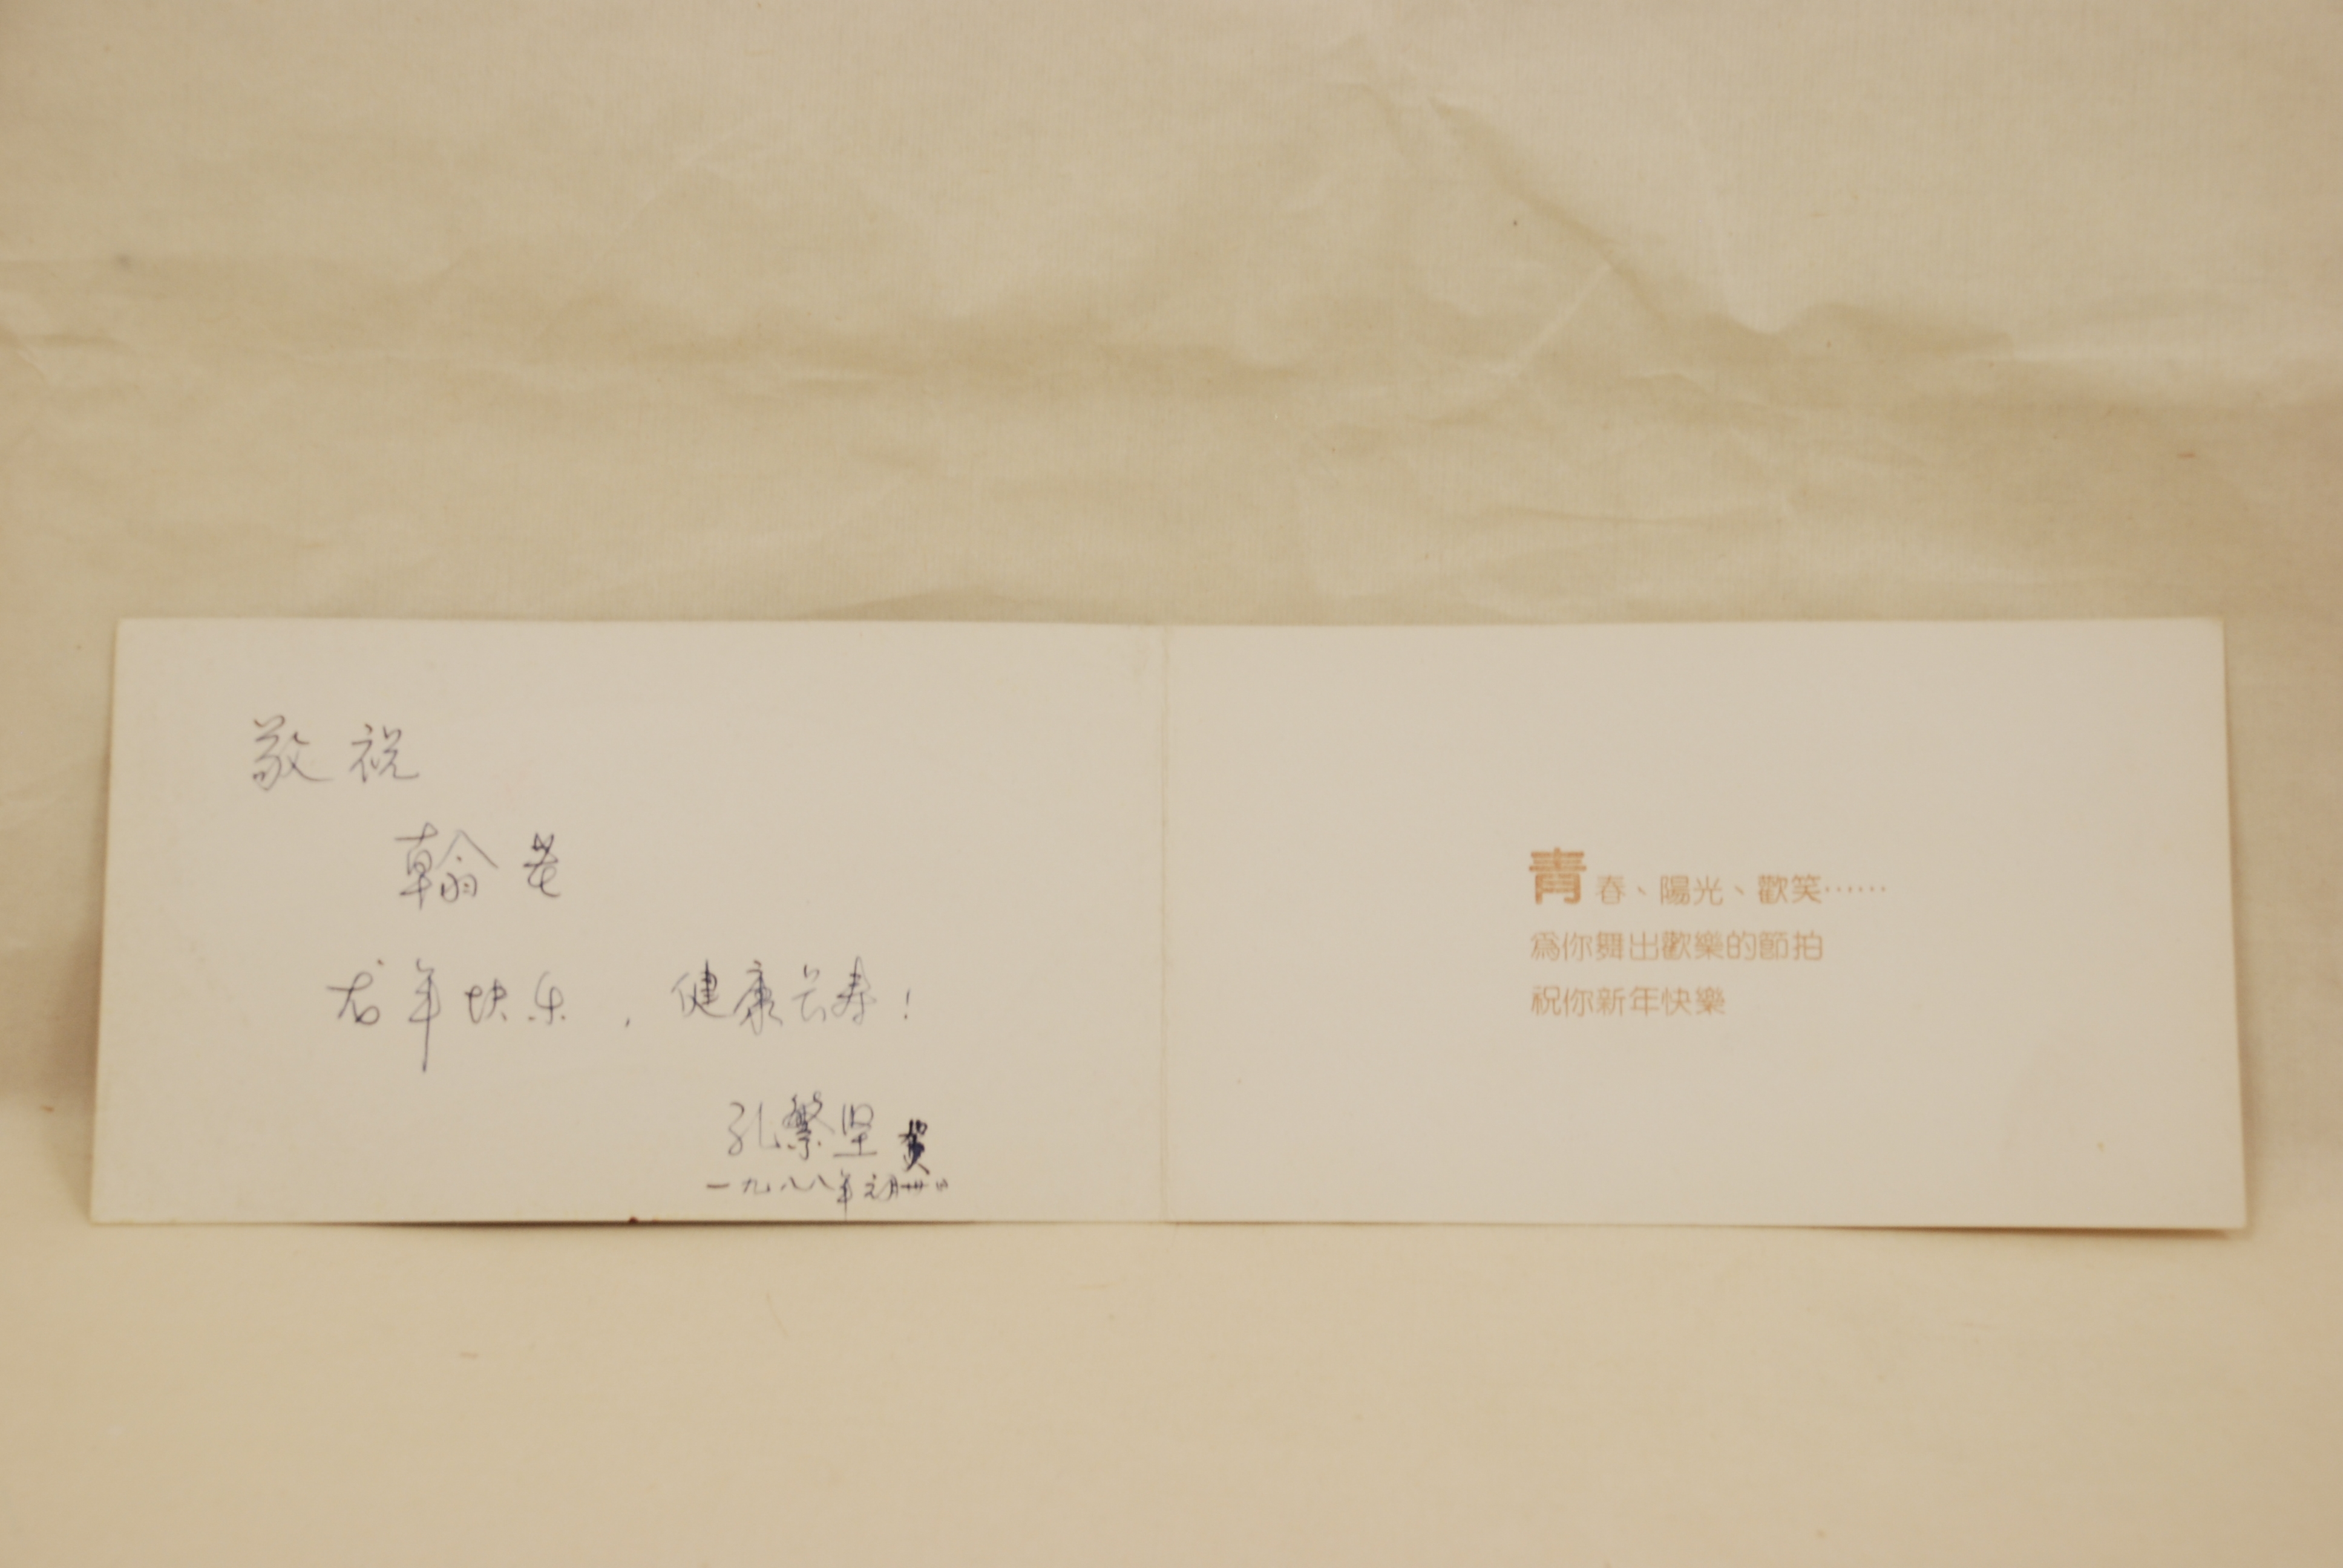 敬祝
翰老
龙年快乐,健康长寿!
孔繁坚 贺
一九八八年元月卅日
青春、陽光、歡笑……
為你舞出歡樂的節拍
祝你新年快樂